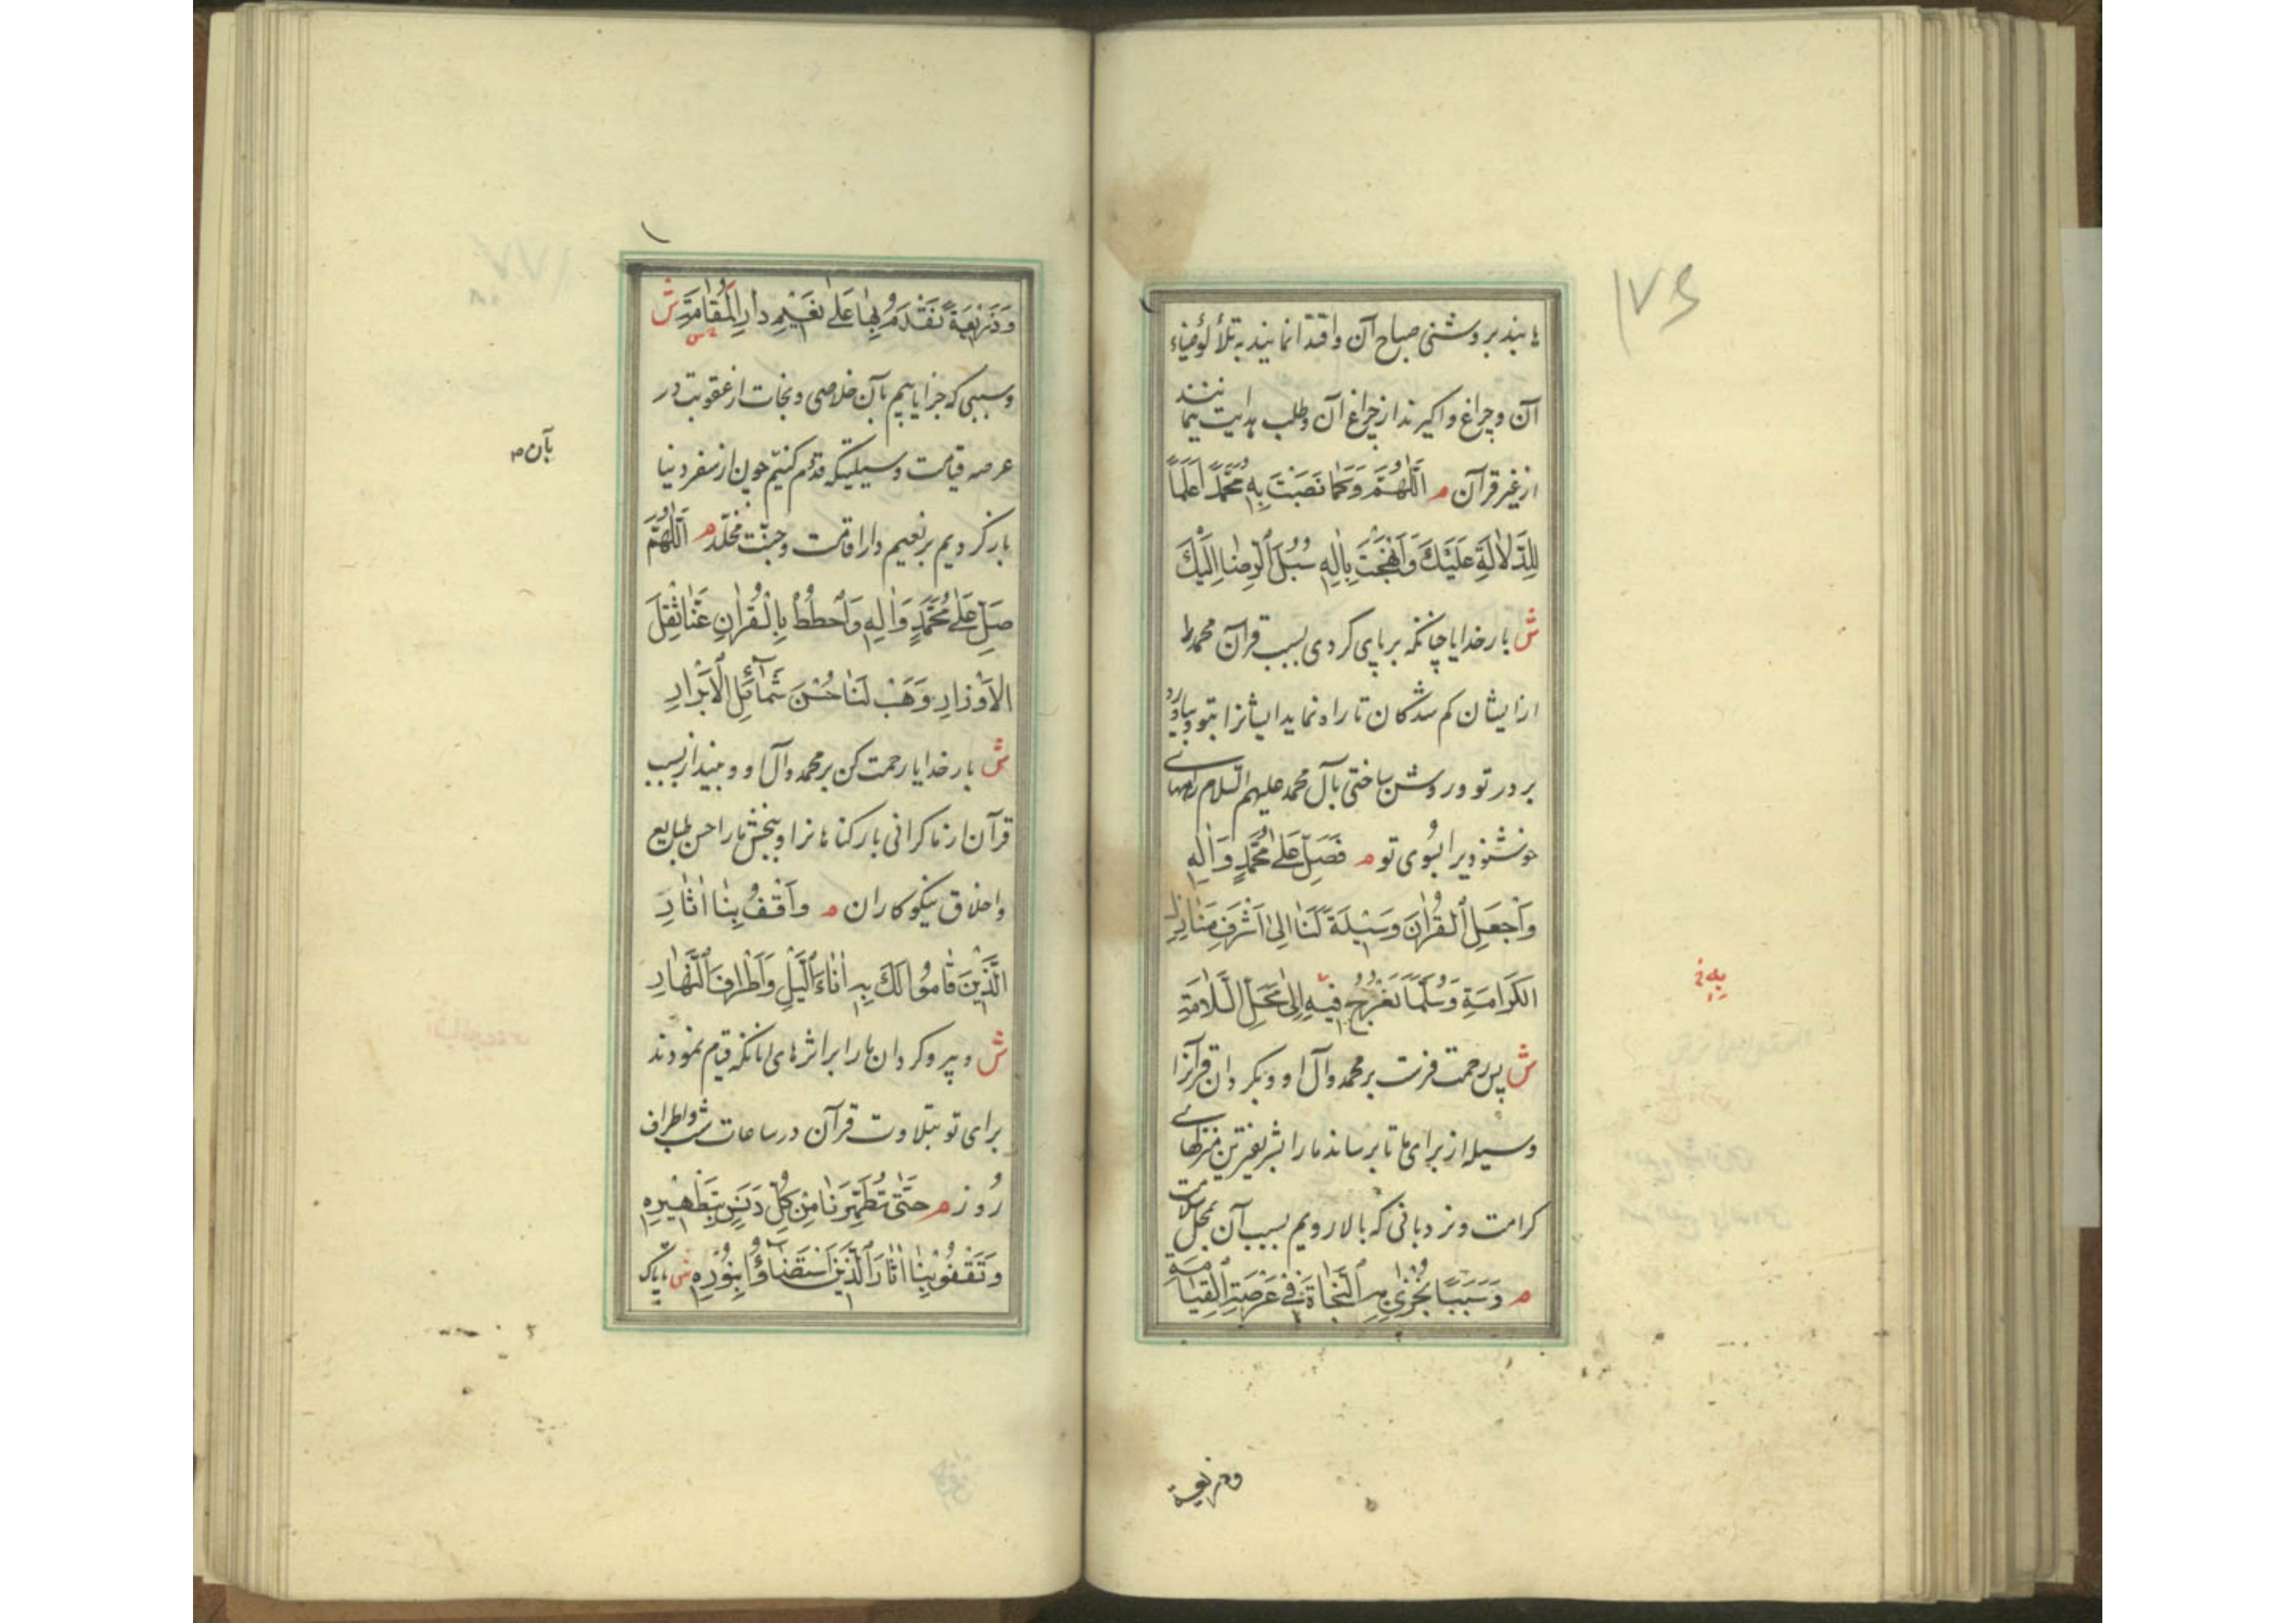 ۱۷۶
یابند بروشنی صباح آن و اقتدا نمایند به تلألؤ ضیاء
آن و چراغ واگیرند از چراغ آن و طلب هدایت ننمایند
از غیر قرآن م اَللّٰهُمَّ وَكَمَا نَصَبْتَ بِهِ مُحَمَّدًا عَلَمًا
لِلدَّلَالَةِ عَلَيْكَ وَاَنْهَجْتَ بِاٰلِهِ سُبُلَ الرِّضَا اِلَيْكَ
ش بار خدایا چنانکه برپای کردی بسبب قرآن محمد را
از ایشان کم شدکان تا راه نماید ایشانرا بتو و بیاورد
بر در تو و روشن ساختی بآل محمد علیهم السلام راههای
خوشنودیرا بسوی تو م فَصَلِّ عَلٰى مُحَمَّدٍ وَاٰلِهِ
وَاجْعَلِ الْقُرْاٰنَ وَسِيْلَةً لَنَا اِلٰى اَشْرَفِ مَنَازِلِ
الْكَرَامَةِ وَسُلَّمًا نَعْرُجُ فِيْهِ اِلٰى مَحَلِّ السَّلَامَةِ
به خ
ش پس رحمت فرست بر محمد و آل او و بکردان قرآنرا
وسیله از برای ما تا برساند ما را بشریفترین منزلهای
کرامت و نردبانی که بالا رویم بسبب آن بمحل سلامت
م وَسَبَبًا نُجْزٰى بِهِ النَّجَاةَ فِي عَرْصَةِ الْقِيَامَةِ
وذریعة
وَذَرِيْعَةً نَقْدَمُ بِهَا عَلٰى نَعِيْمِ دَارِ الْمُقَامَةِ ش
وسببی که جزا یابیم بآن خلاصی و نجات از عقوبت در
عرصه قیامت و وسیلتیکه قدوم کنیم چون از سفر دنیا
بآن
باز کردیم بر نعیم دار اقامت و جنّت مخلّد م اَللّٰهُمَّ
صَلِّ عَلٰى مُحَمَّدٍ وَاٰلِهِ وَاحْطُطْ بِالْقُرْاٰنِ عَنَّا ثِقْلَ
الْاَوْزَارِ وَهَبْ لَنَا حُسْنَ شَمَائِلِ الْاَبْرَارِ
ش بار خدایا رحمت کن بر محمد و آل او و بینداز بسبب
قرآن از ما کرانی بار کناهانرا و ببخش ما را حسن طبایع
و اخلاق نیکوکاران م وَاقْفُ بِنَا اٰثَارَ
الَّذِيْنَ قَامُوا لَكَ بِهِ اٰنَاءَ اللَّيْلِ وَاَطْرَافَ النَّهَارِ
ش و پیرو کردان ما را بر اثرهای آنانکه قیام نمودند
برای تو بتلاوت قرآن در ساعات شب و اطراف
روز م حَتّٰى تُطَهِّرَنَا مِنْ كُلِّ دَنَسٍ بِتَطْهِيْرِهِ
وَتَقْفُوَ بِنَا اٰثَارَ الَّذِيْنَ اسْتَضَاؤُا بِنُوْرِهِ ش تا پاک